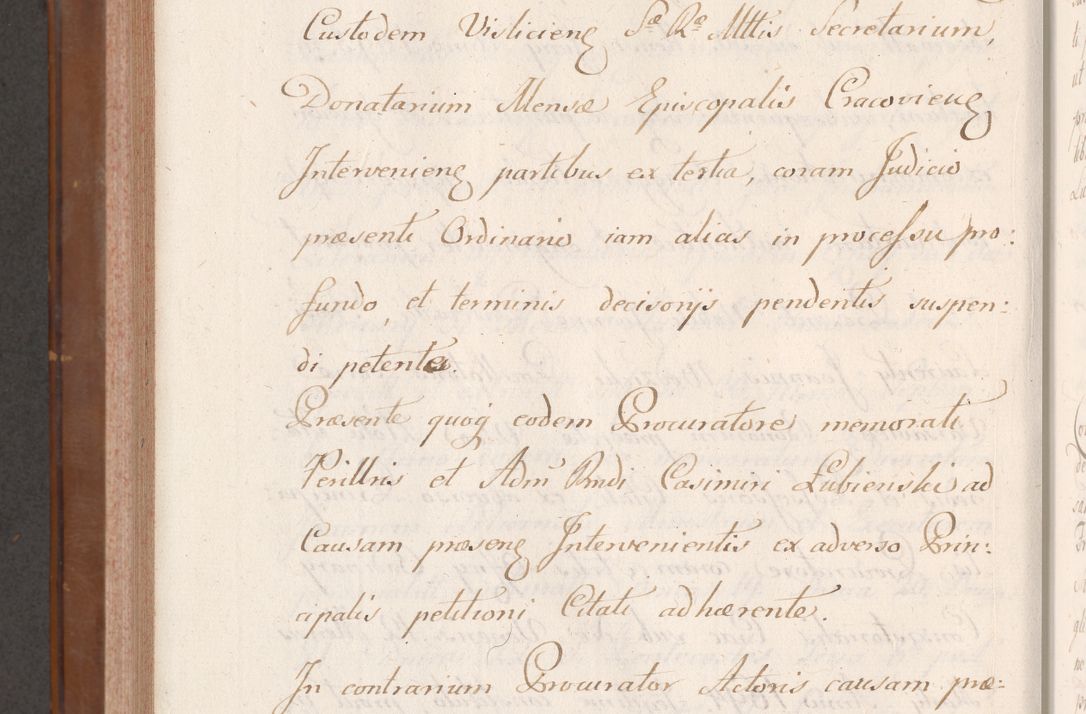 Custodem Visliciens Sæ Ræ Mttis Secretarium,
Donatarium Mensæ Episcopalis Cracoviens
Interveniens partibus ex tertia, coram Judicio
præsenti Ordinario iam alias in processu pro:
fundo, et terminis decisorijs pendentis suspen:
di petente.
Præsente quoq eodem Procuratore memorati
Perillris et Adm Rndi Casimiri Lubienski ad
Causam præsens Intervenientis ex adverso Prin:
cipalis petitioni Citati adhærente.
In contrarium Procurator Actoris causam præ: